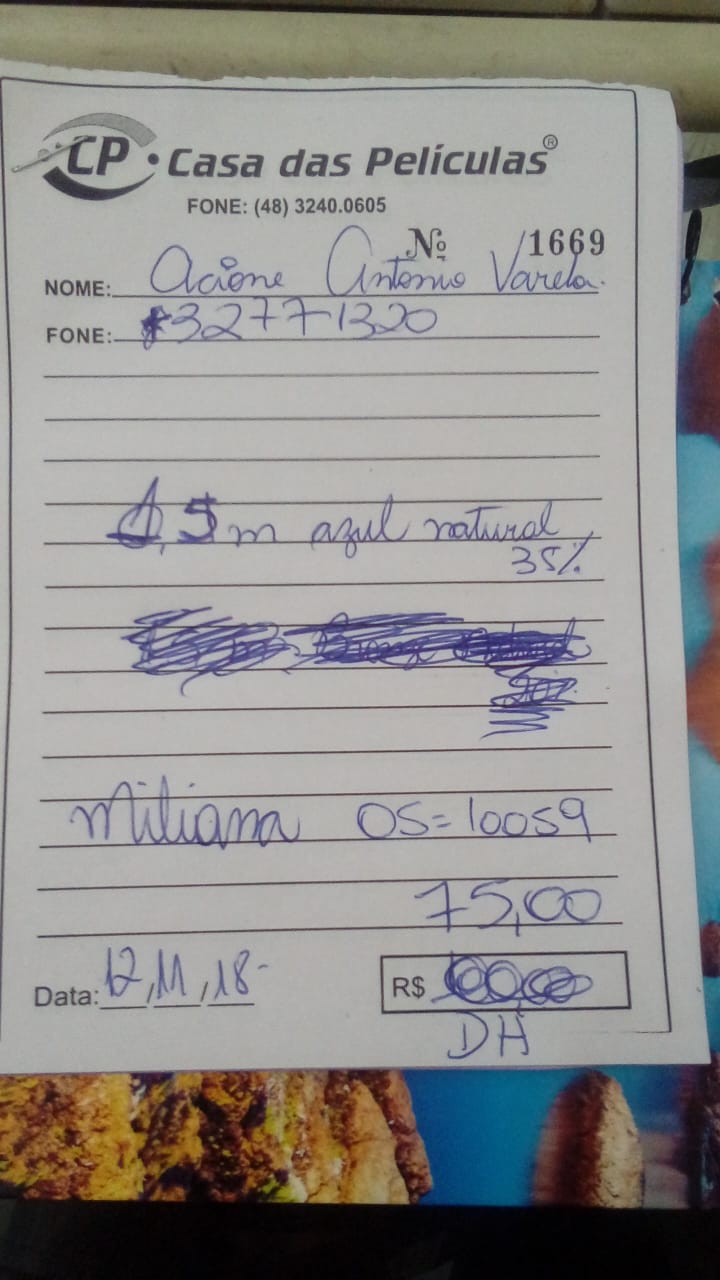 CP • Casa das Películas®
FONE: (48) 3240.0605
Nº 1669
NOME: Acione Antonio Varela.
FONE: 32771320
1,5m azul natural
35%
20%
Miliana OS=10059
75,00
Data: 12/11/18
R$
DH